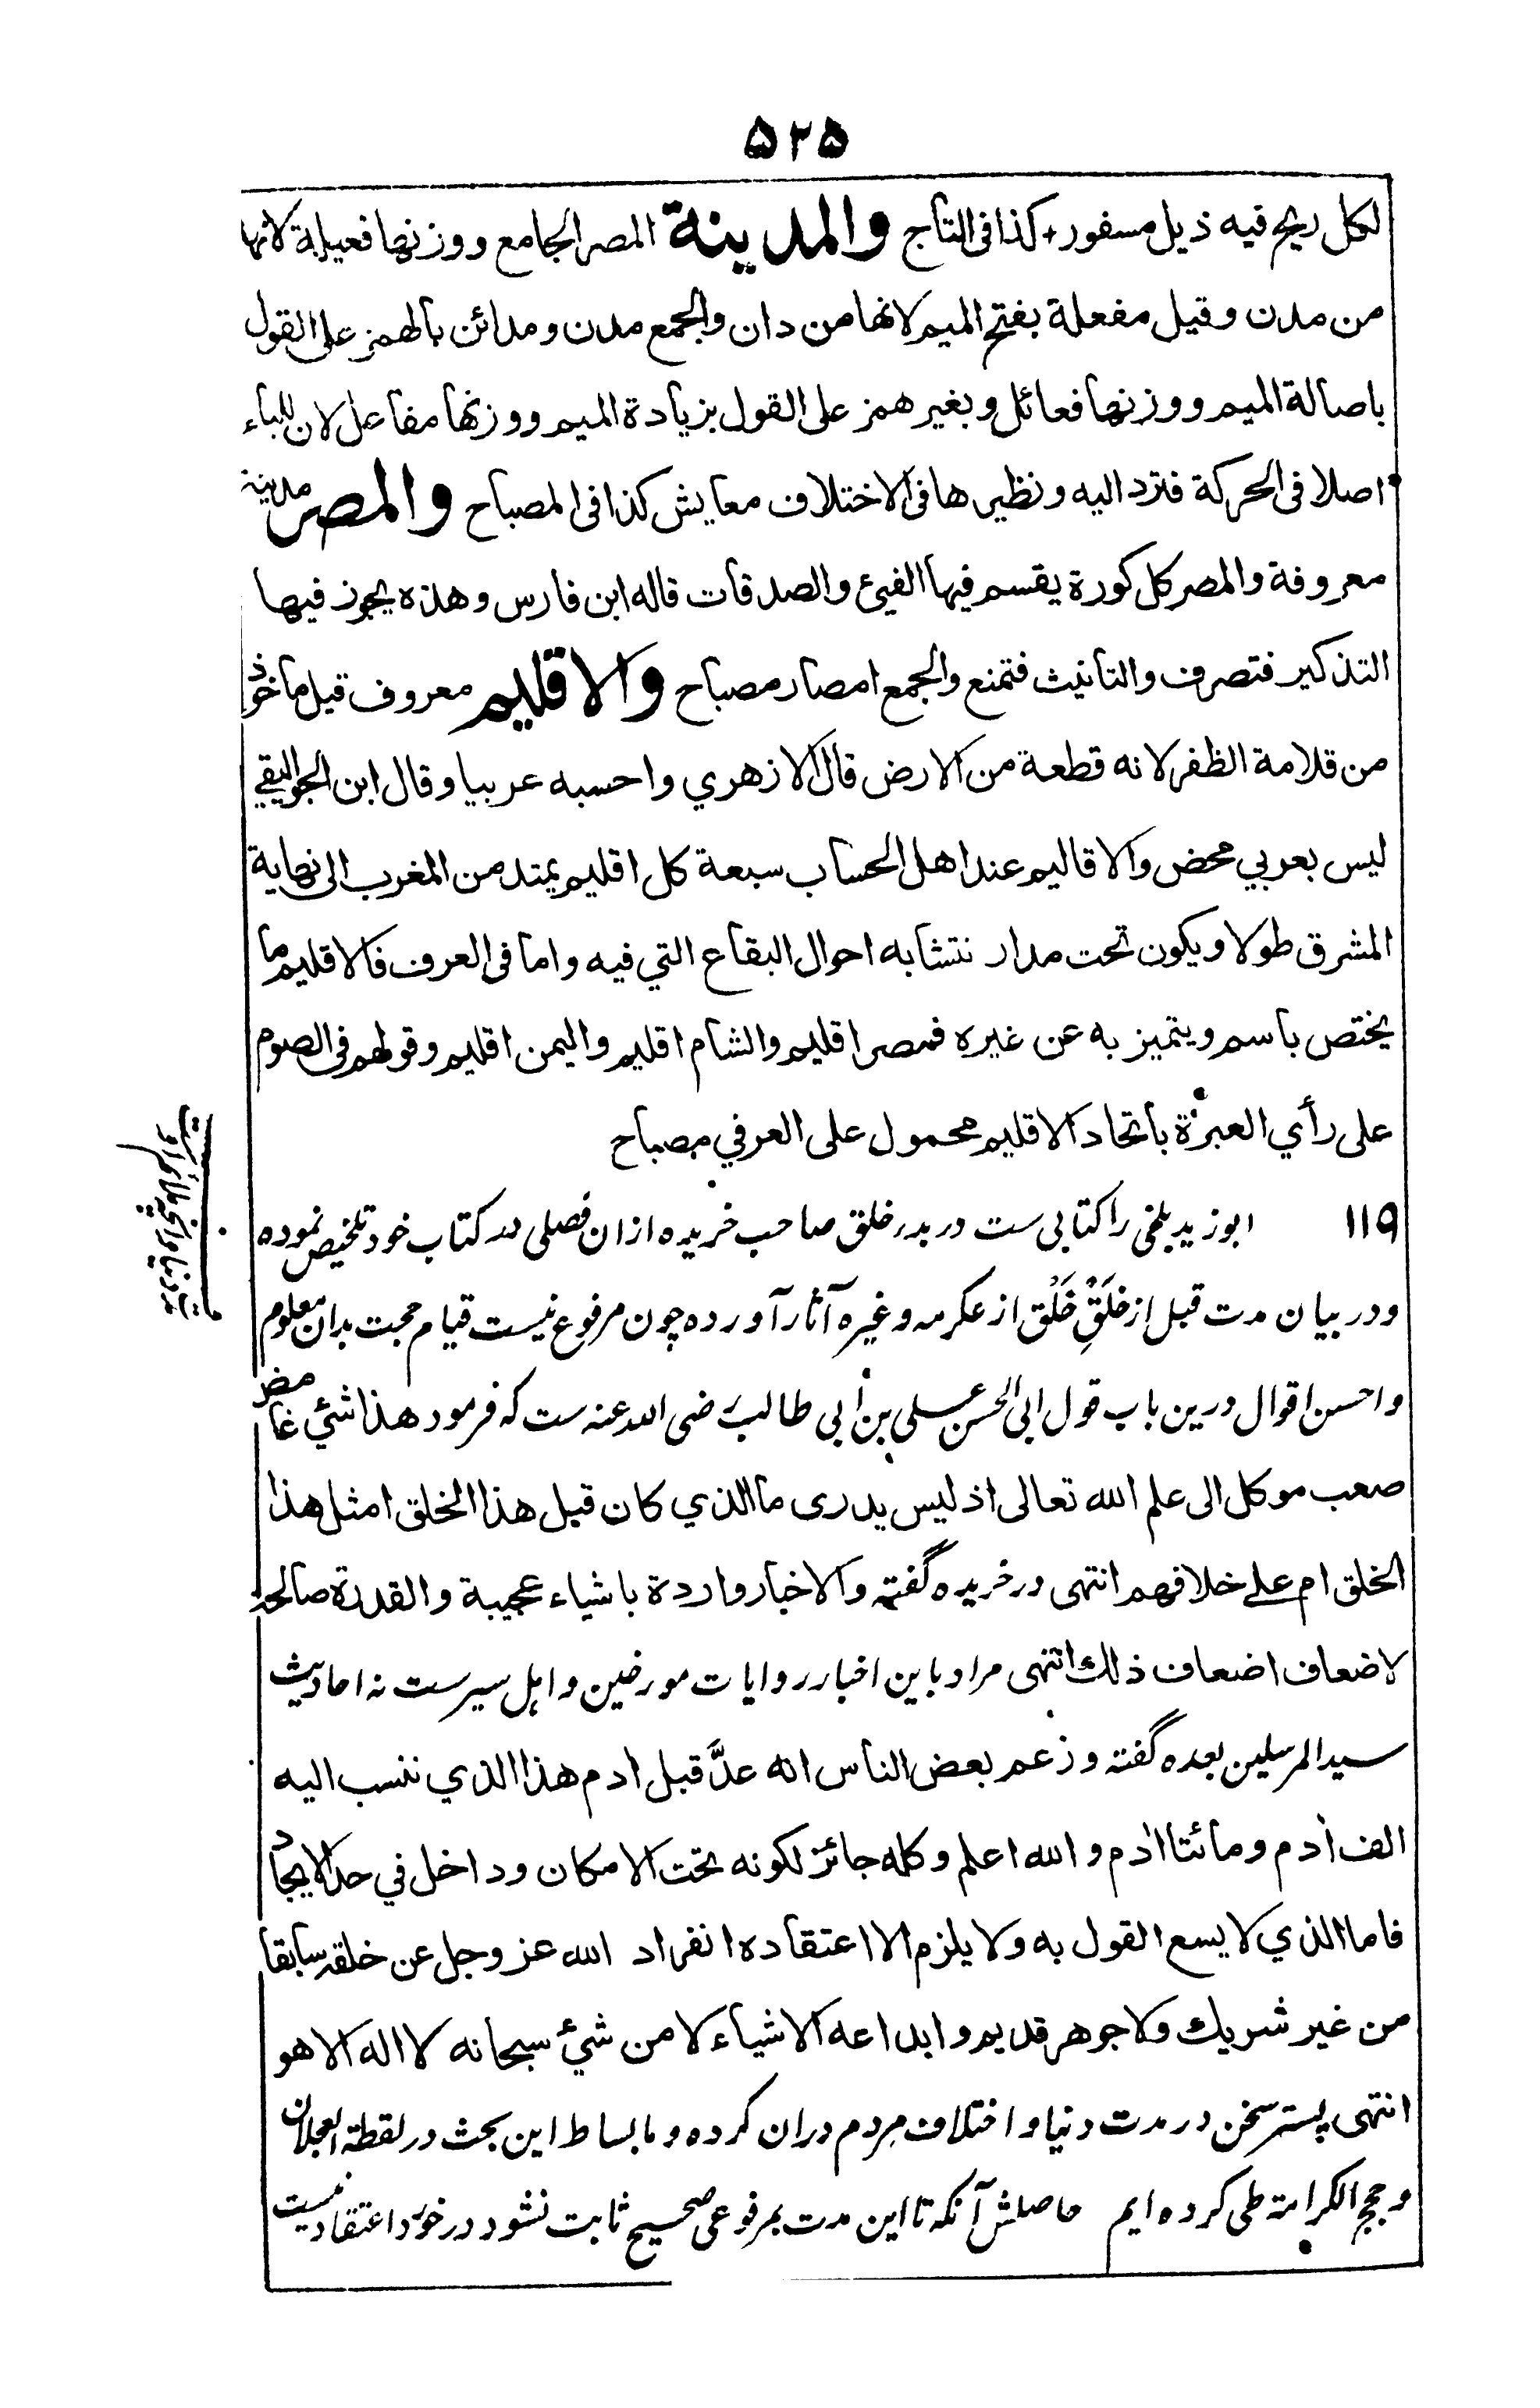 ۵۲۵
لكل ريح فيه ذيل مسفور + كذا فى التاج والمدينة المصر الجامع ووزنها فعيلة لانها
من مدن وقيل مفعلة بفتح الميم لانها من دان والجمع مدن ومدائن بالهمز على القول
باصالة الميم ووزنها فعائل وبغير همز على القول بزيادة الميم ووزنها مفاعل لان للياء
اصلا فى الحركة فترد اليه ونظيرها فى الاختلاف معايش كذا فى المصباح والمصر مدينة
معروفة والمصر كل كورة يقسم فيها الفيئ والصدقات قاله ابن فارس وهذه يجوز فيها
التذكير فتصرف والتانيث فتمنع والجمع امصار مصباح والاقليم معروف قيل ماخوذ
من قلامة الظفر لانه قطعة من الارض قال الازهري واحسبه عربيا وقال ابن الجواليقي
ليس بعربي محض والاقاليم عند اهل الحساب سبعة كل اقليم يمتد من المغرب الى نهاية
المشرق طولا ويكون تحت مدار تتشابه احوال البقاع التي فيه واما فى العرف فالاقليم ما
يختص باسم ويتميز به عن غيره فمصر اقليم والشام اقليم واليمن اقليم وقولهم فى الصوم
على رأي العبرة باتحاد الاقليم محمول على العرفي مصباح
۱۱۹ ابوزيد بلخى را كتابى ست در بدر خلق صاحب خريده ازان فصلى در كتاب خود تلخيص نموده
ودر بيان مدت قبل از خَلَقِ خَلْق از عكرمه وغيره آثار آورده چون مرفوع نيست قيام حجت بدان معلوم
واحسن اقوال درين باب قول ابى الحسن على بن أبى طالب رضى الله عنه ست كه فرمود هذا شئ غامض
صعب موكل الى علم الله تعالى اذ ليس يدرى ما الذي كان قبل هذا الخلق امثل هذا
الخلق ام على خلافهم انتهى در خريده گفته والاخبار واردة باشياء عجيبة والقدرة صالحة
لاضعاف اضعاف ذلك انتهى مراد باين اخبار روايات مورخين واہل سيرست نه احاديث
سيد المرسلين بعده گفته وزعم بعض الناس انه عدَّ قبل ادم هذا الذي ننسب اليه
الف اٰدم ومائتا اٰدم والله اعلم وكله جائز لكونه تحت الامكان وداخل في حد الايجاد
فاما الذي لا يسع القول به ولا يلزم الا اعتقاده انفراد الله عز وجل عن خلقه سابقا
من غير شريك ولا جوهر قديم وابداعه الاشياء لا من شيئ سبحانه لا اله الا هو
انتهى پستر سخن در مدت دنيا واختلاف مردم دران كرده وما بساط اين بحث در لقطة العجلان
وحجج الكرامة طى كرده ايم حاصلش آنكه تا اين مدت بمرفوعى صحيح ثابت نشود در خور اعتقاد نيست